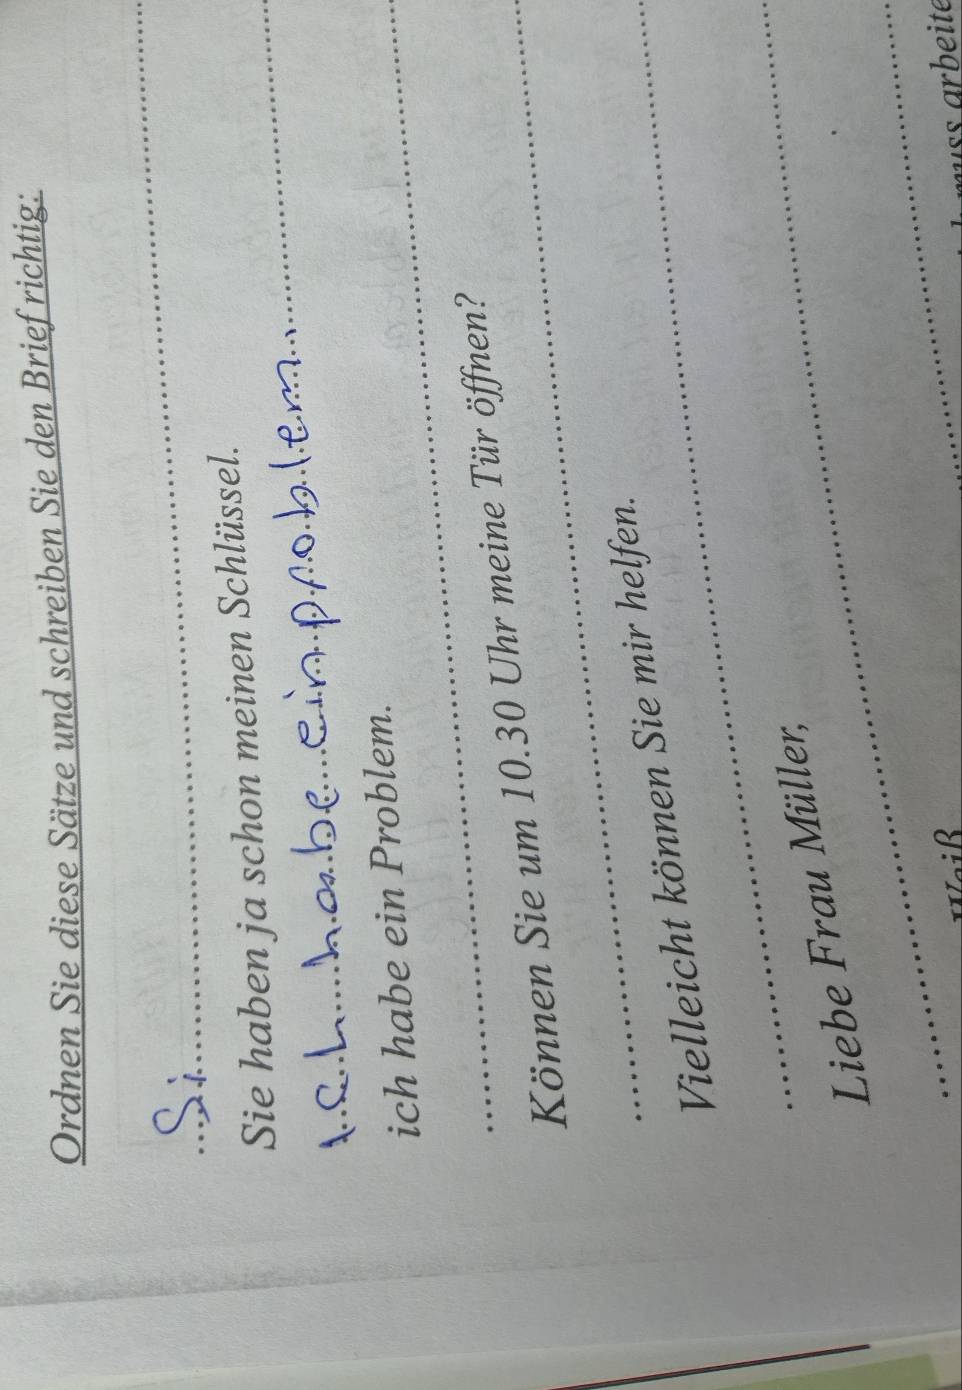 Ordnen Sie diese Sätze und schreiben Sie den Brief richtig:
Si
Sie haben ja schon meinen Schlüssel.
ich habe ein problem
ich habe ein Problem.
Können Sie um 10.30 Uhr meine Tür öffnen?
Vielleicht können Sie mir helfen.
Liebe Frau Müller,
muss arbeite